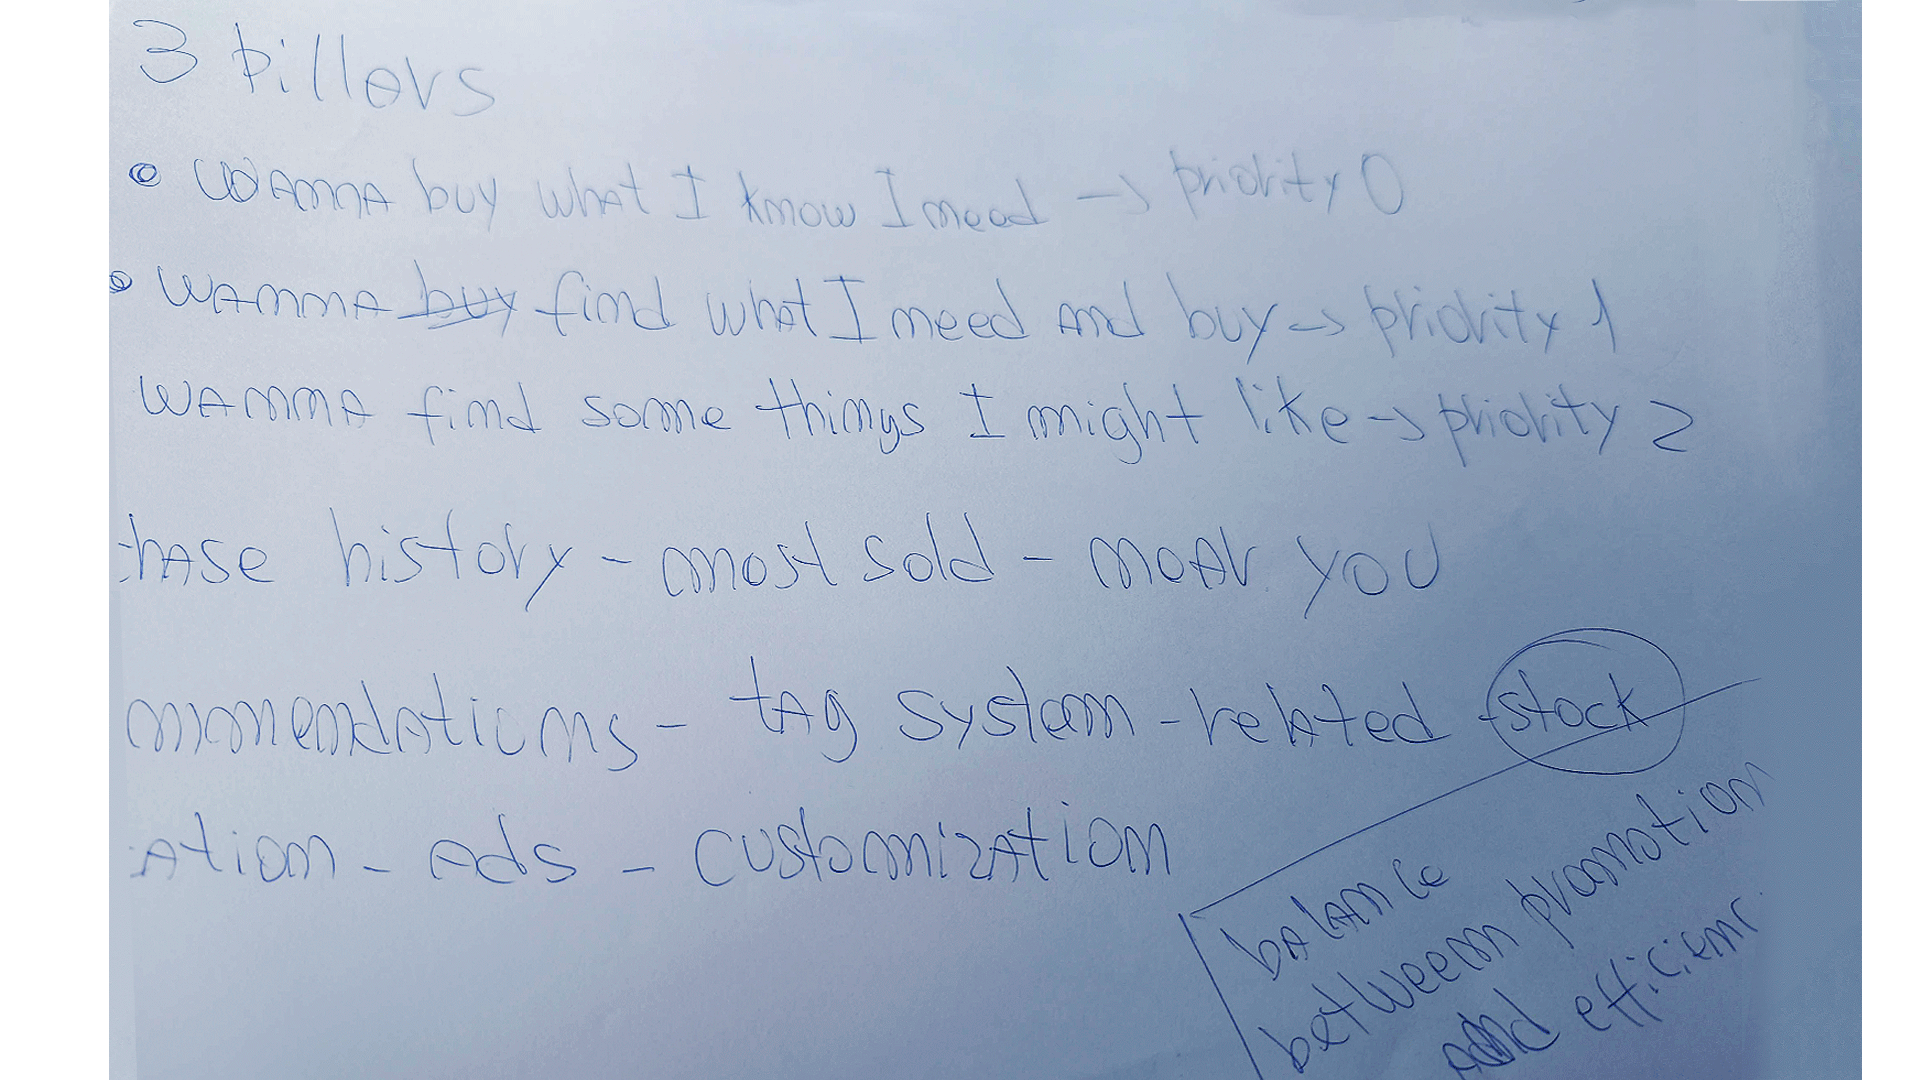 3 pillars
• WANNA buy what I know I need → priority 0
• WANNA buy find what I need and buy → priority 1
WANNA find some things I might like → priority 2
hase history - most sold - near you
mmendations - tag system - related - stock
ation - Ads - customization
balance
between promotion
and efficienc